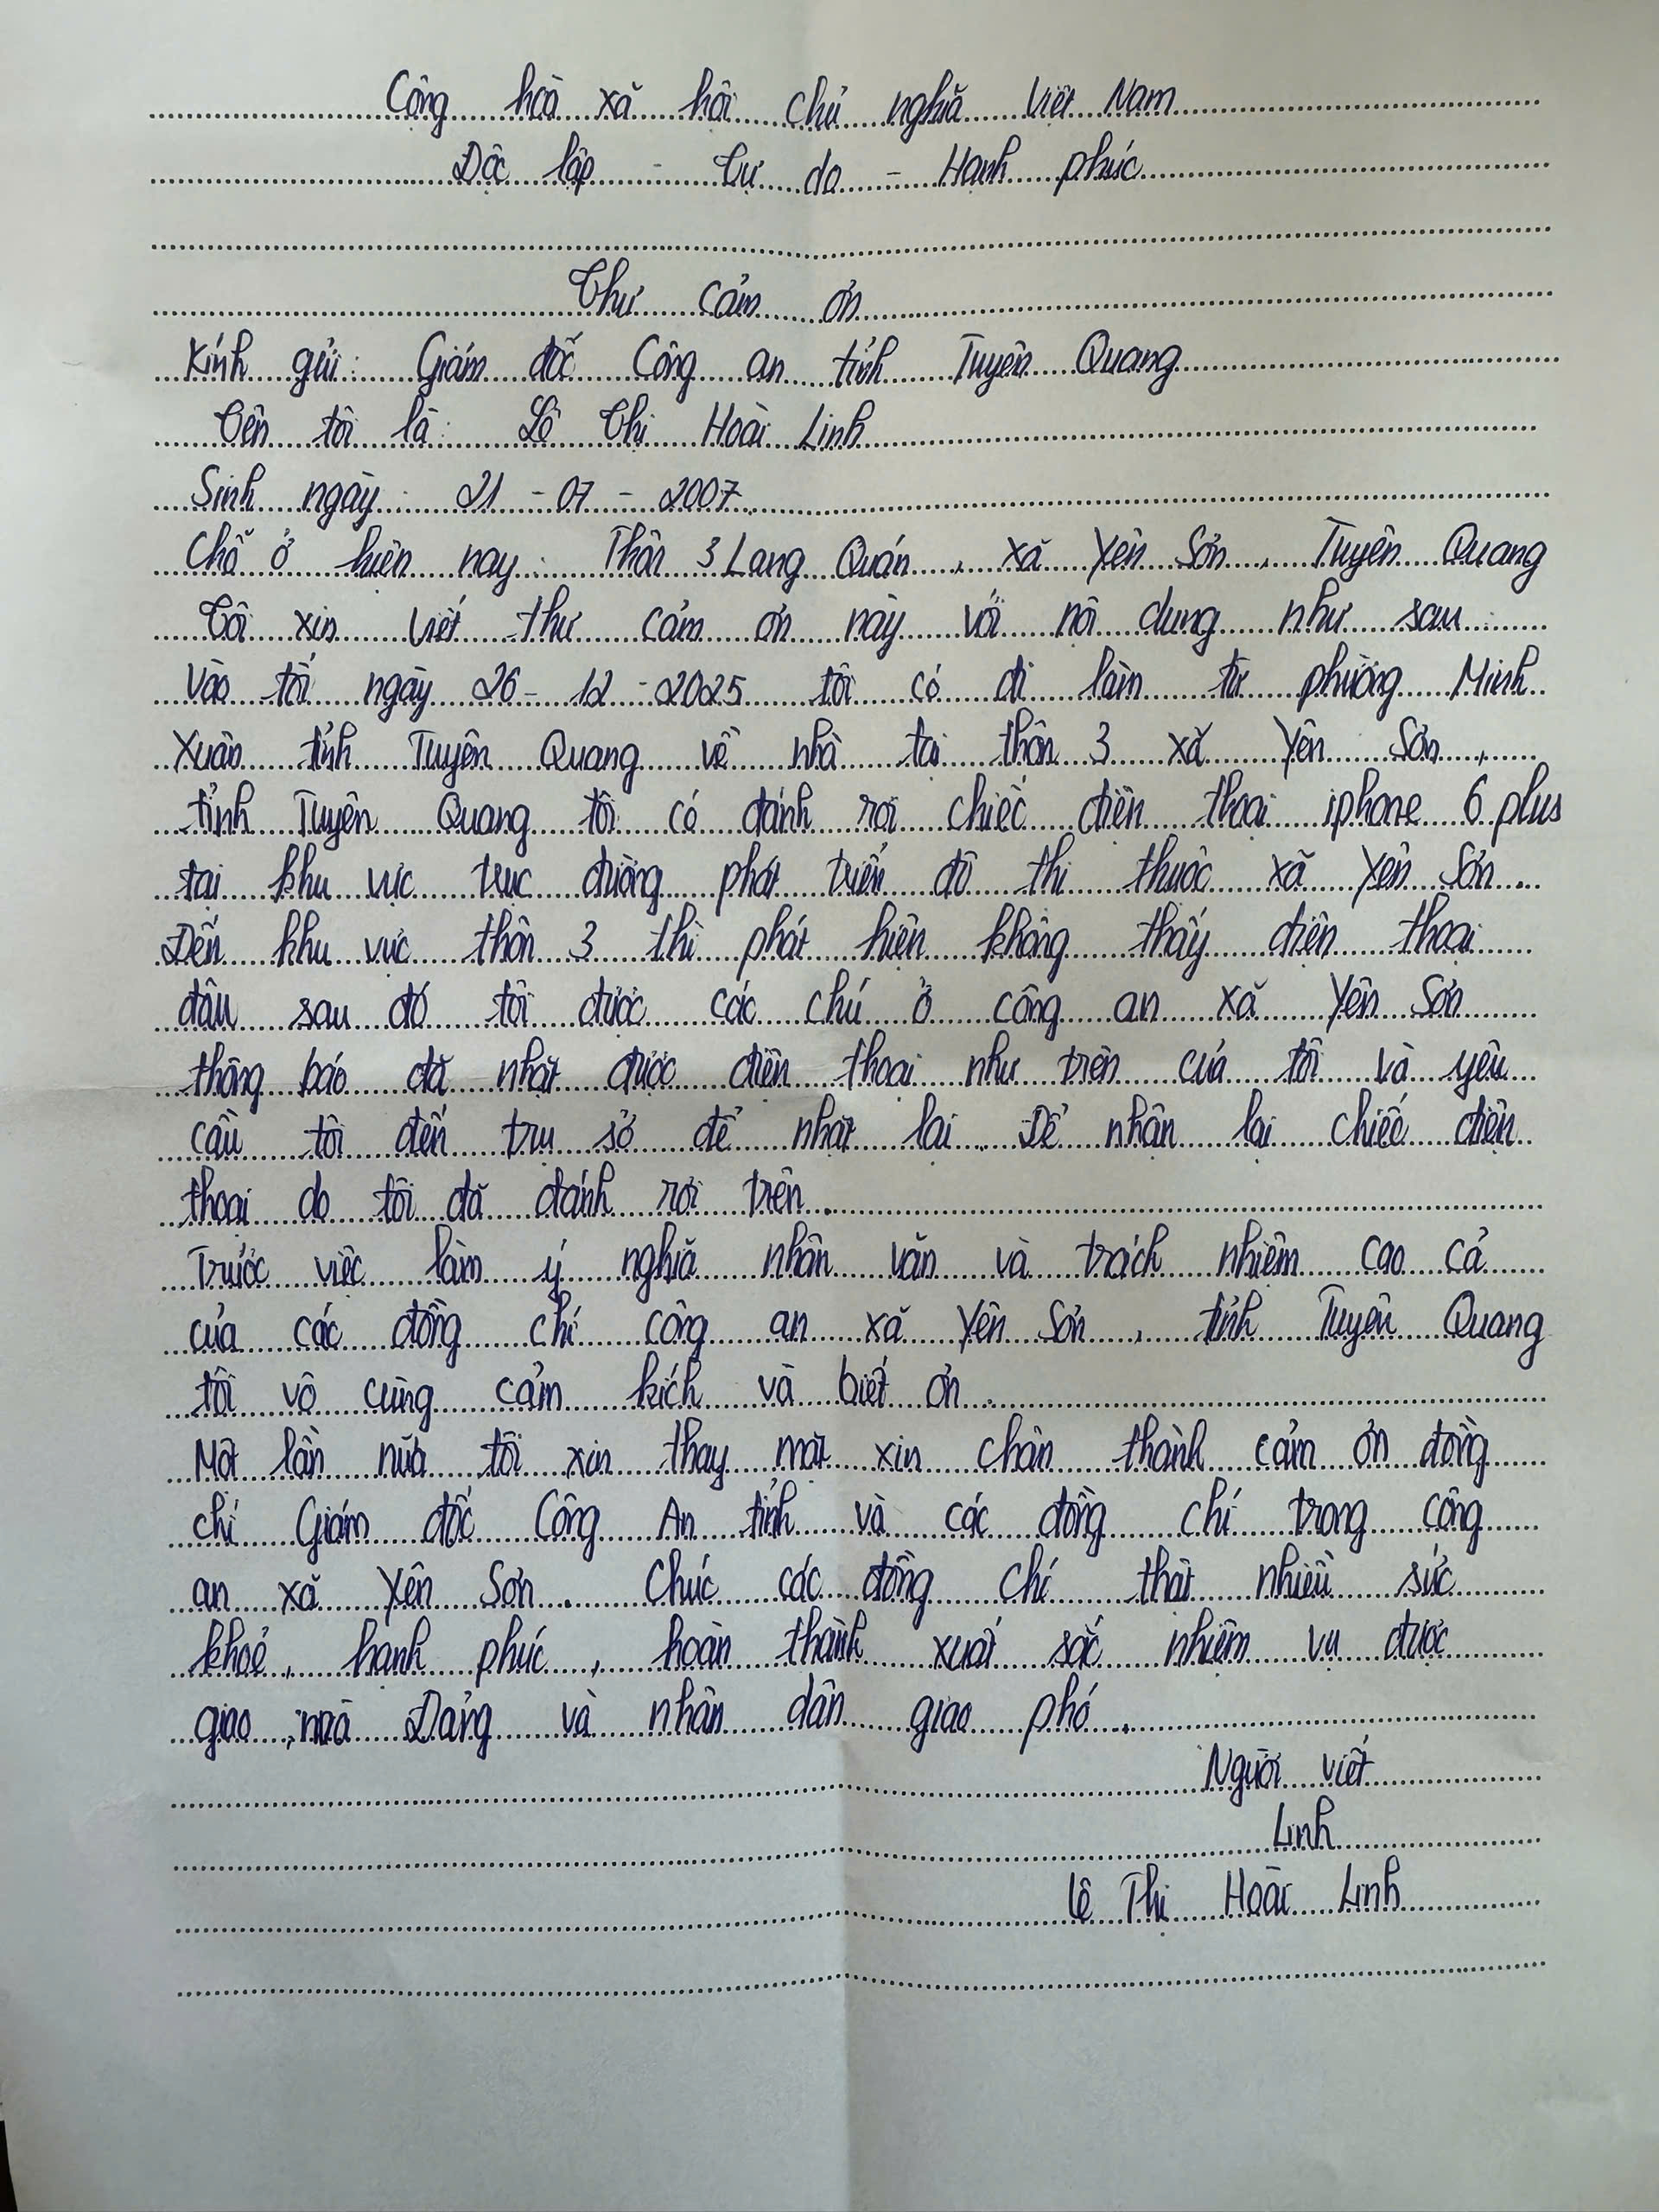 Cộng hoà xã hội chủ nghĩa Việt Nam
Độc lập - Tự do - Hạnh phúc
Thư cảm ơn
Kính gửi: Giám đốc Công an tỉnh Tuyên Quang
Tên tôi là: Lê Thị Hoài Linh
Sinh ngày: 21 - 07 - 2007
Chỗ ở hiện nay: Thôn 3 Lang Quán, xã Yên Sơn, Tuyên Quang
Tôi xin viết thư cảm ơn này với nội dung như sau:
Vào tối ngày 26 - 12 - 2025 tôi có đi làm từ phường Minh
Xuân tỉnh Tuyên Quang về nhà tại thôn 3 xã Yên Sơn,
tỉnh Tuyên Quang tôi có đánh rơi chiếc điện thoại iphone 6 plus
tại khu vực trục đường phát triển đô thị thuộc xã Yên Sơn.
Đến khu vực thôn 3 thì phát hiện không thấy điện thoại
đâu sau đó tôi được các chú ở công an xã Yên Sơn
thông báo đã nhặt được điện thoại như trên của tôi và yêu
cầu tôi đến trụ sở để nhặt lại. Để nhận lại chiếc điện
thoại do tôi đã đánh rơi trên.
Trước việc làm ý nghĩa nhân văn và trách nhiệm cao cả
của các đồng chí công an xã Yên Sơn, tỉnh Tuyên Quang
tôi vô cùng cảm kích và biết ơn.
Một lần nữa tôi xin thay mặt xin chân thành cảm ơn đồng
chí Giám đốc Công An tỉnh và các đồng chí trong công
an xã Yên Sơn. Chúc các đồng chí thật nhiều sức
khoẻ, hạnh phúc, hoàn thành xuất sắc nhiệm vụ được
giao, mà Đảng và nhân dân giao phó.
Người viết
Linh
Lê Thị Hoài Linh